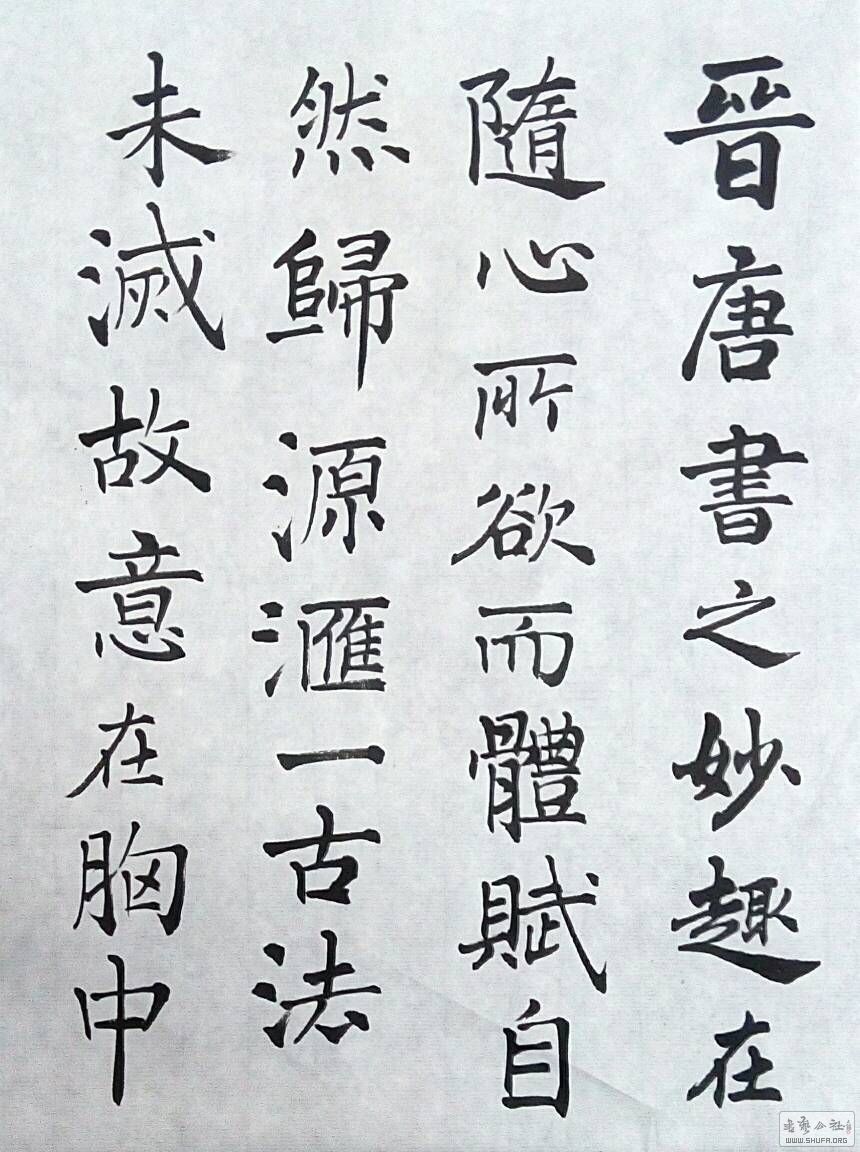 晉唐書之妙趣在
隨心所欲而體賦自
然歸源滙一古法
未滅故意在胸中
書藝公社
WWW.SHUFA.ORG